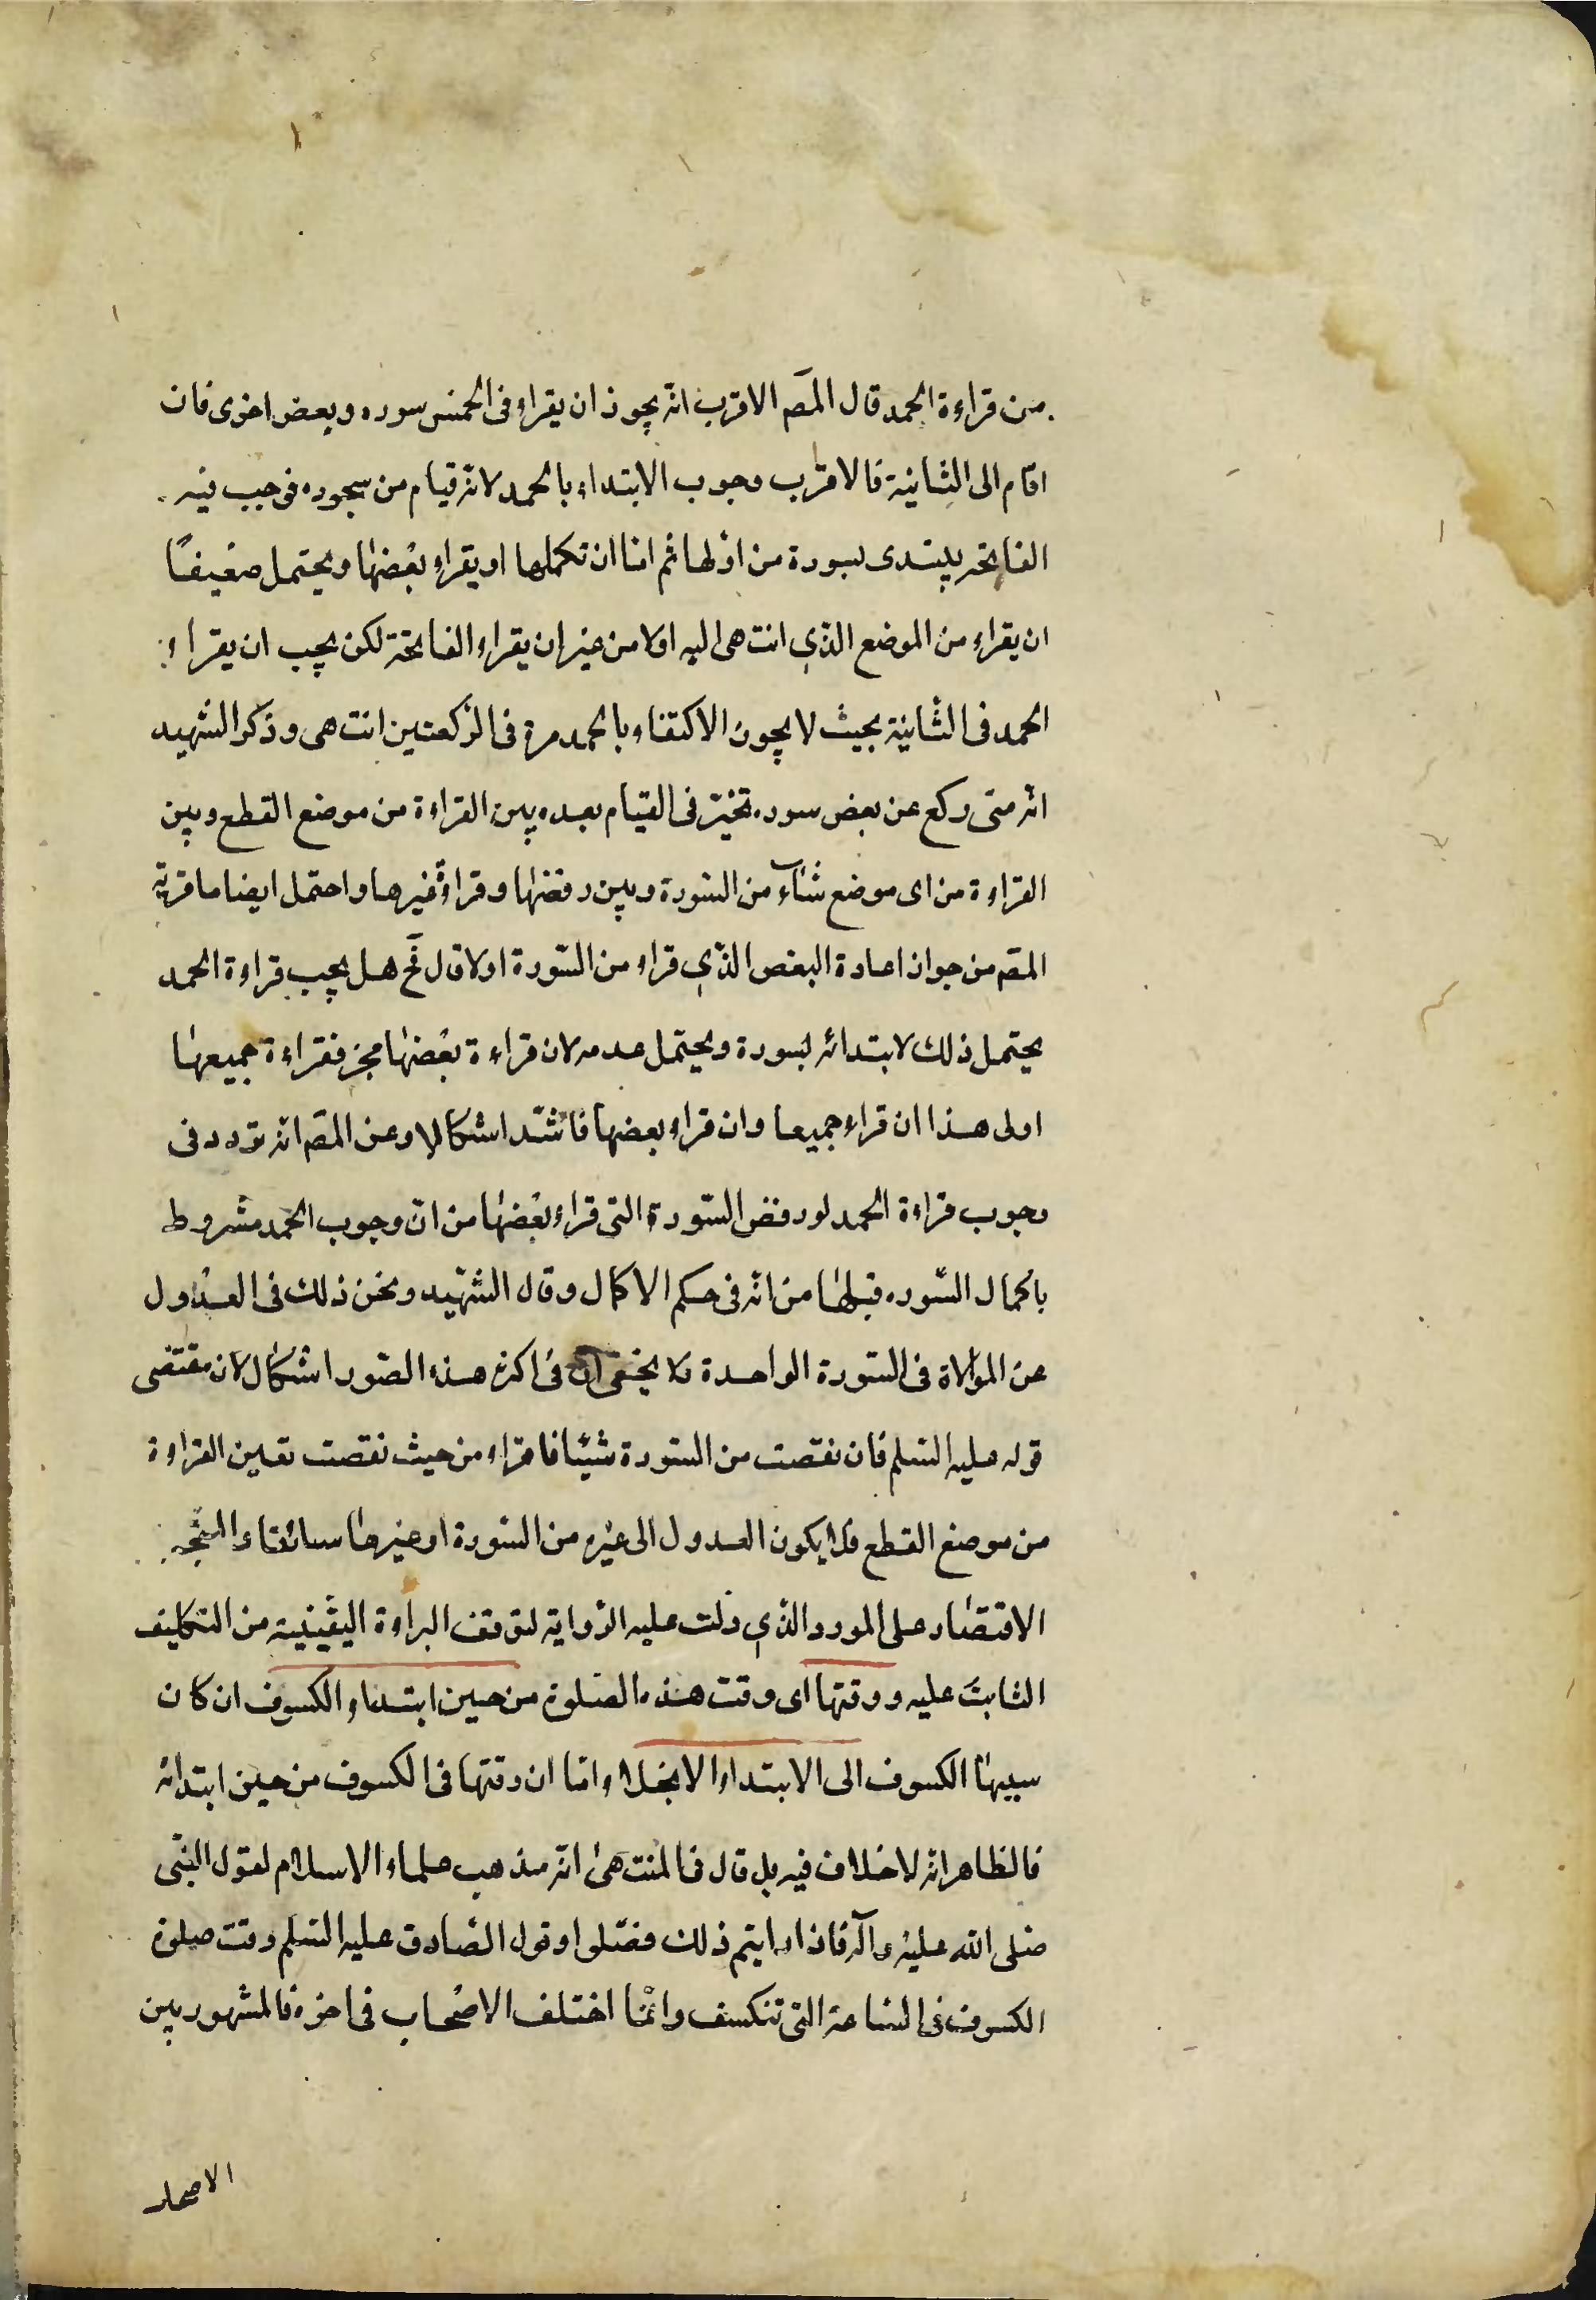 من قراءة الحمد قال المصَ الاقرب انه يجوز ان يقراء فى الخمس سوره وبعض اخرى فان
اقام الى الثانية فالاقرب وجوب الابتداء بالحمد لانه قيام من سجوده فوجب فيه
الفاتحه يبتدى بسورة من اولها ثم اما ان تكملها او يقراء بعضها ويحتمل ضعيفًا
ان يقراء من الموضع الذي انتهى اليه اولا من غير ان يقراء الفاتحة لكن يجب ان يقراء
الحمد فى الثانية بحيث لا يجوز الاكتفاء بالحمد مرة فى الركعتين انتهى وذكر الشهيد
انه متى ركع عن بعض سوره تخير فى القيام بعده بين القراءة من موضع القطع وبين
القراءة من اى موضع شآء من السورة وبين رفضها وقراءة غيرها واحتمل ايضا ما قربه
المصَ من جواز اعادة البعض الذي قراء من السورة اولا قال فَح هل يجب قراءة الحمد
يحتمل ذلك لابتدائه بسورة ويحتمل عدمه لان قراءة بعضها مجز فقراءة جميعها
اولى هذا ان قراء جميعا وان قراء بعضها فاشتد اشكالا وعن المصَ انه تردد فى
وجوب قراءة الحمد لو رفض السورة التى قراء بعضها من ان وجوب الحمد مشروط
باكمال السوره قبلها من انه فى حكم الاكمال وقال الشهيد ونحن ذلك فى العدول
عن الموالاة فى السورة الواحدة ولا يخفى ان فى اكثر هذه الصور اشكال لان مقتضى
قوله عليه السلم فان نقصت من السورة شيئا فاقراء من حيث نقصت تعين القراءة
من موضع القطع فلا يكون العدول الى غيره من السورة او غيرها سائغا والمتجه
الاقتصار على المورد الذي دلت عليه الرواية لتوقف البراءة اليقينية من التكليف
الثابت عليه ووقتها اى وقت هذه الصلوة من حين ابتداء الكسوف ان كان
سببها الكسوف الى الابتداء الانجلاء واما ان وقتها فى الكسوف من حين ابتدائه
فالظاهر انه لا خلاف فيه بل قال فى المنتهى انه مذهب علماء الاسلام لقول النبى
صلى الله عليه وآله فاذا رايتم ذلك فصلوا وقول الصادق عليه السلم وقت صلوة
الكسوف فى الساعة التى تنكسف وانما اختلف الاصحاب فى اخره فالمشهور بين
الاصحاب